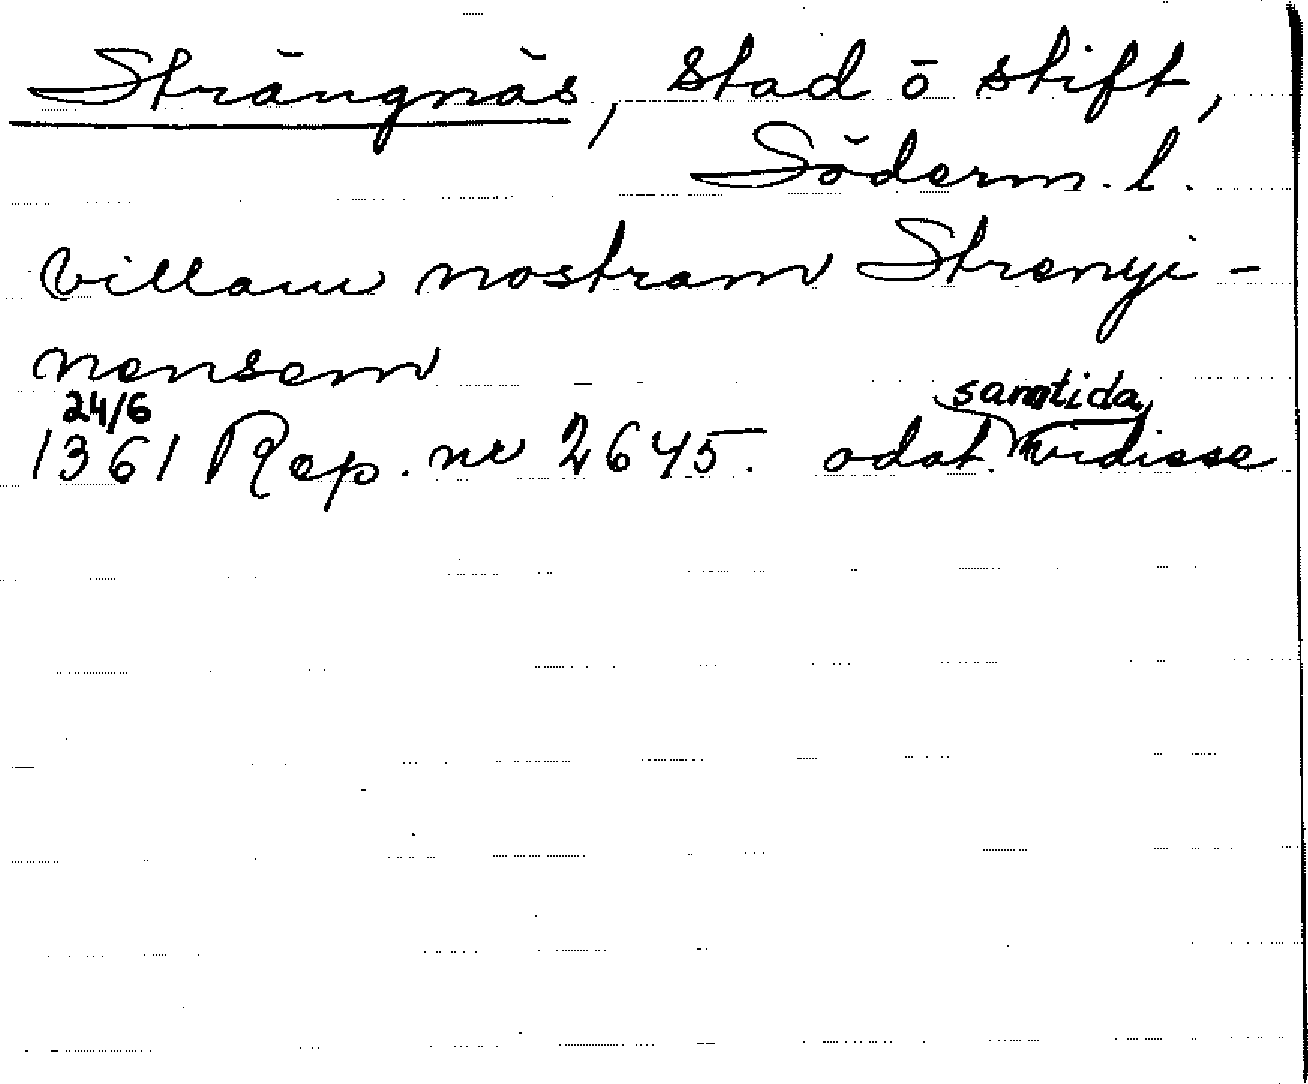 Strängnäs, stad o stift,
Söderm. l.
villam nostram Strengi-
nensem
24/6 samtida
1361 Rep. nr 2645. odat. vidisse